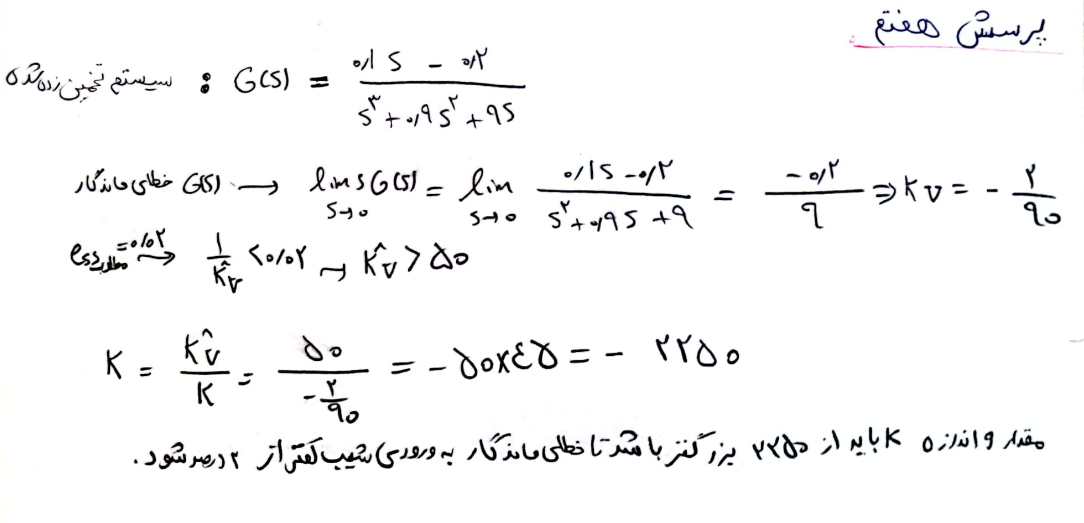 پرسش هفتم
سیستم تخمین زده شده : G(s) = (۰/۱ s - ۰/۲) / (s^۳ + ۰/۹ s^۲ + ۹s)
خطای ماندگار G(s) → lim s→0 s G(s) = lim s→0 (۰/۱s - ۰/۲) / (s^۲ + ۰/۹s + ۹) = (-۰/۲) / ۹ ⇒ Kv = - ۲/۹۰
ess مطلوب = ۰/۰۲ → ۱/K̂v < ۰/۰۲ → K̂v > ۵۰
K = K̂v / K = ۵۰ / (-۲/۹۰) = - ۵۰×۴۵ = - ۲۲۵۰
مقدار و اندازه K باید از ۲۲۵۰ بزرگتر باشد تا خطای ماندگار به ورودی شیب کمتر از ۲ درصد شود.